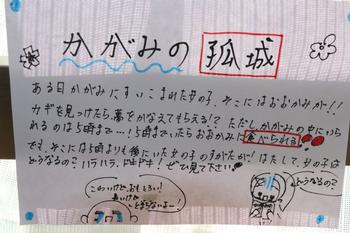 かがみの孤城
ある日かがみにすいこまれた女の子。そこにはおおかみが!!
カギを見つけたら、夢をかなえてもらえる!? ただし、かがみの中にいら
れるのは5時まで…!5時までいたらおおかみに食べられる!!
です。そこには5時よりも後にいた女の子のすがたが!はたして、女の子は
どうなるの?ハラハラ、ドキドキ!ぜひ見て下さい!
こわいけど、おもしろい!
どうなるの?